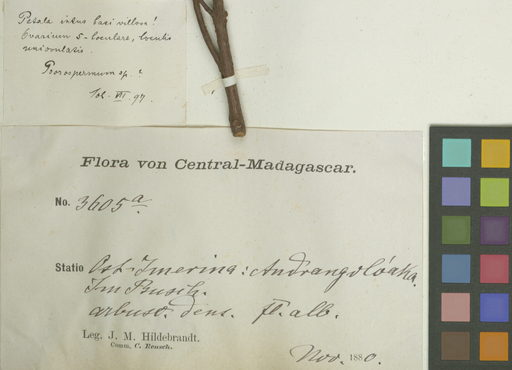 Petala intus basi villosa!
Ovarium 5-loculare, loculis
uniovulatis.
Poorospermum sp. ?
VII. 97.
Flora von Central-Madagascar.
No. 3605 a.
Statio Ost-Imerina: Andrangolóaka.
Im Busch.
arbusc. dens. fl. alb.
Leg. J. M. Hildebrandt.
Comm. C. Rensch.
Nov. 1880.